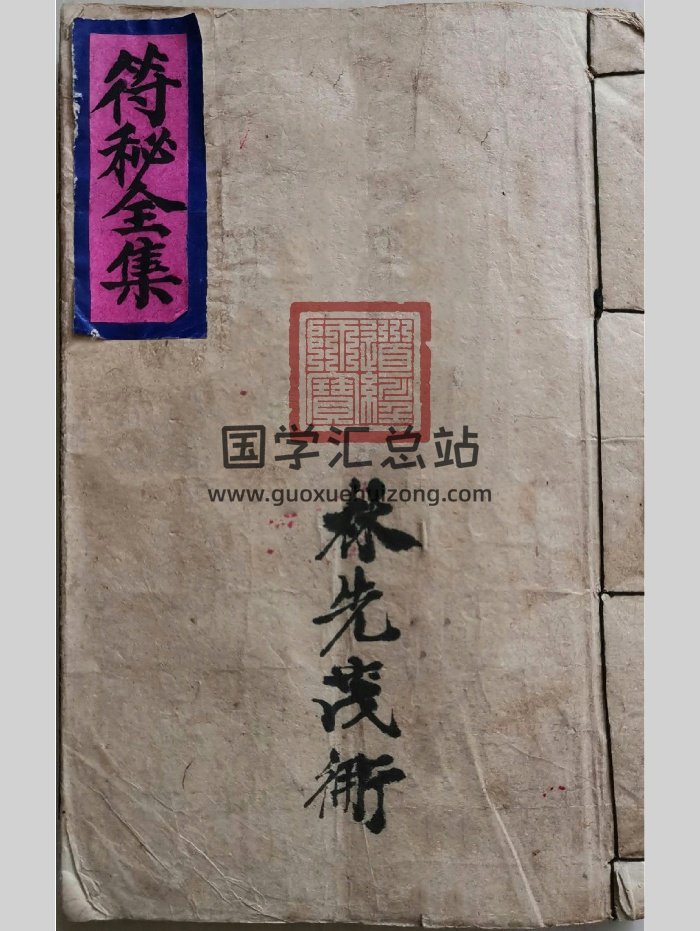 符秘全集
道經師寶
国学汇总站
www.guoxuehuizong.com
林先茂衛